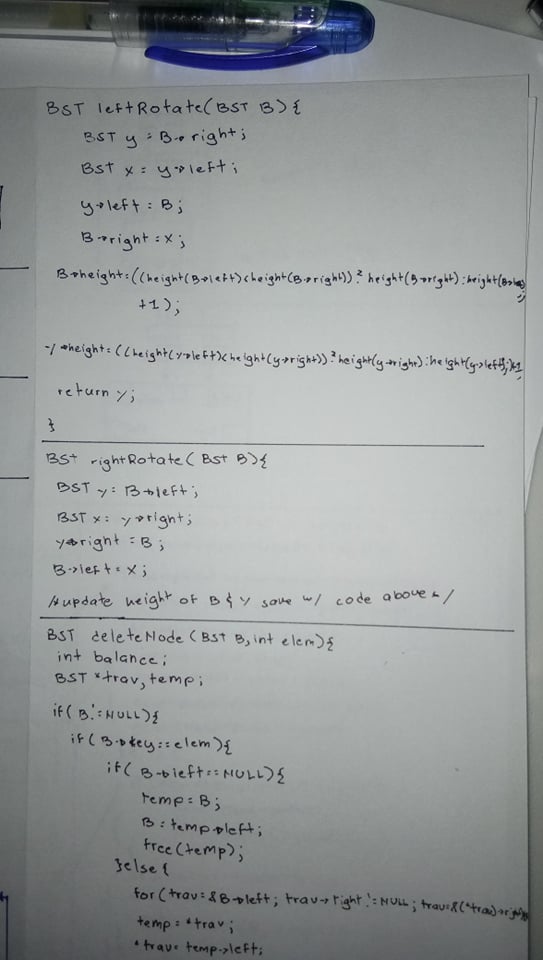 BST leftRotate(BST B){
BST y = B->right;
BST x = y->left;
y->left = B;
B->right = x;
B->height = ((height(B->left)<height(B->right))? height(B->right) : height(B->left)
+1);
y->height = ((height(y->left)<height(y->right))?height(y->right):height(y->left));+1
return y;
}
BST rightRotate(BST B){
BST y = B->left;
BST x = y->right;
y->right = B;
B->left = x;
/*update height of B & y save w/ code above */
BST deleteNode(BST B, int elem){
int balance;
BST *trav, temp;
if(B!=NULL){
if(B->key==elem){
if(B->left==NULL){
temp = B;
B = temp->left;
free(temp);
}else{
for(trav=&B->left; trav->right!=NULL; trav=&(*trav)->right
temp = *trav;
*trav = temp->left;